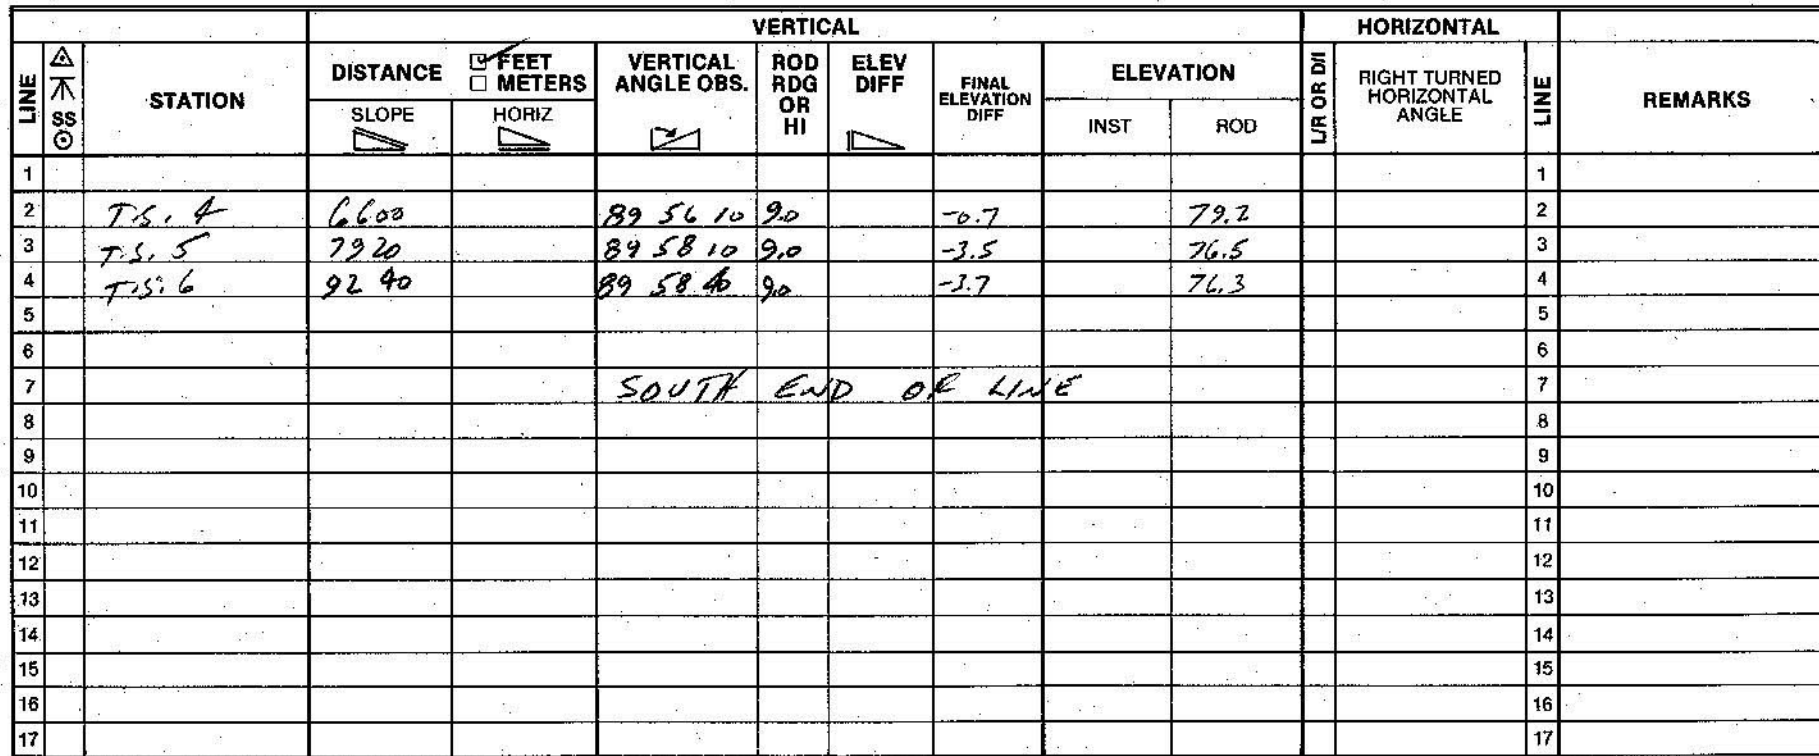 VERTICAL HORIZONTAL
LINE SS STATION DISTANCE FEET METERS VERTICAL ANGLE OBS. ROD RDG OR HI ELEV DIFF FINAL ELEVATION DIFF ELEVATION L/R OR D/I RIGHT TURNED HORIZONTAL ANGLE LINE REMARKS
SLOPE HORIZ INST ROD
1 1
2 T.S. 4 6600 89 56 10 9.0 -0.7 79.2 2
3 T.S. 5 7920 89 58 10 9.0 -3.5 76.5 3
4 T.S. 6 92 40 89 58 40 9.0 -3.7 76.3 4
5 5
6 6
7 SOUTH END OF LINE 7
8 8
9 9
10 10
11 11
12 12
13 13
14 14
15 15
16 16
17 17